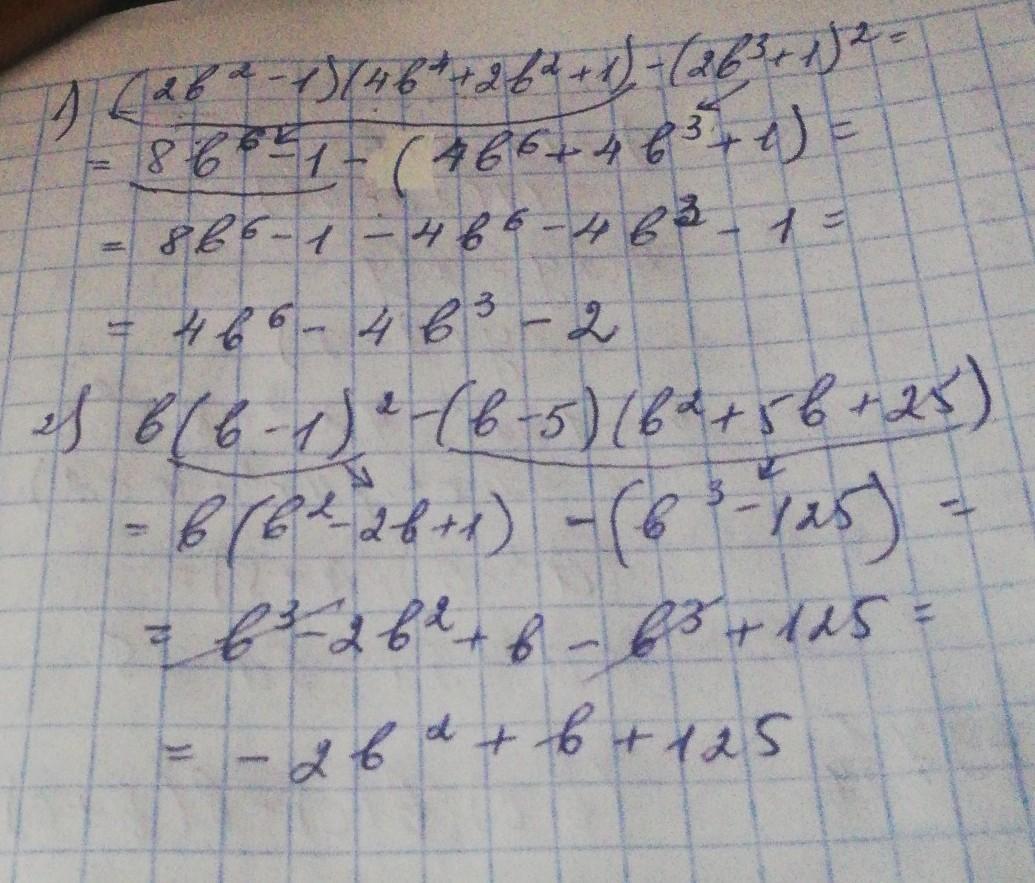 1) (2b² - 1)(4b⁴ + 2b² + 1) - (2b³ + 1)² =
= 8b⁶ - 1 - (4b⁶ + 4b³ + 1) =
= 8b⁶ - 1 - 4b⁶ - 4b³ - 1 =
= 4b⁶ - 4b³ - 2
2) b(b - 1)² - (b - 5)(b² + 5b + 25)
= b(b² - 2b + 1) - (b³ - 125) =
= b³ - 2b² + b - b³ + 125 =
= - 2b² + b + 125